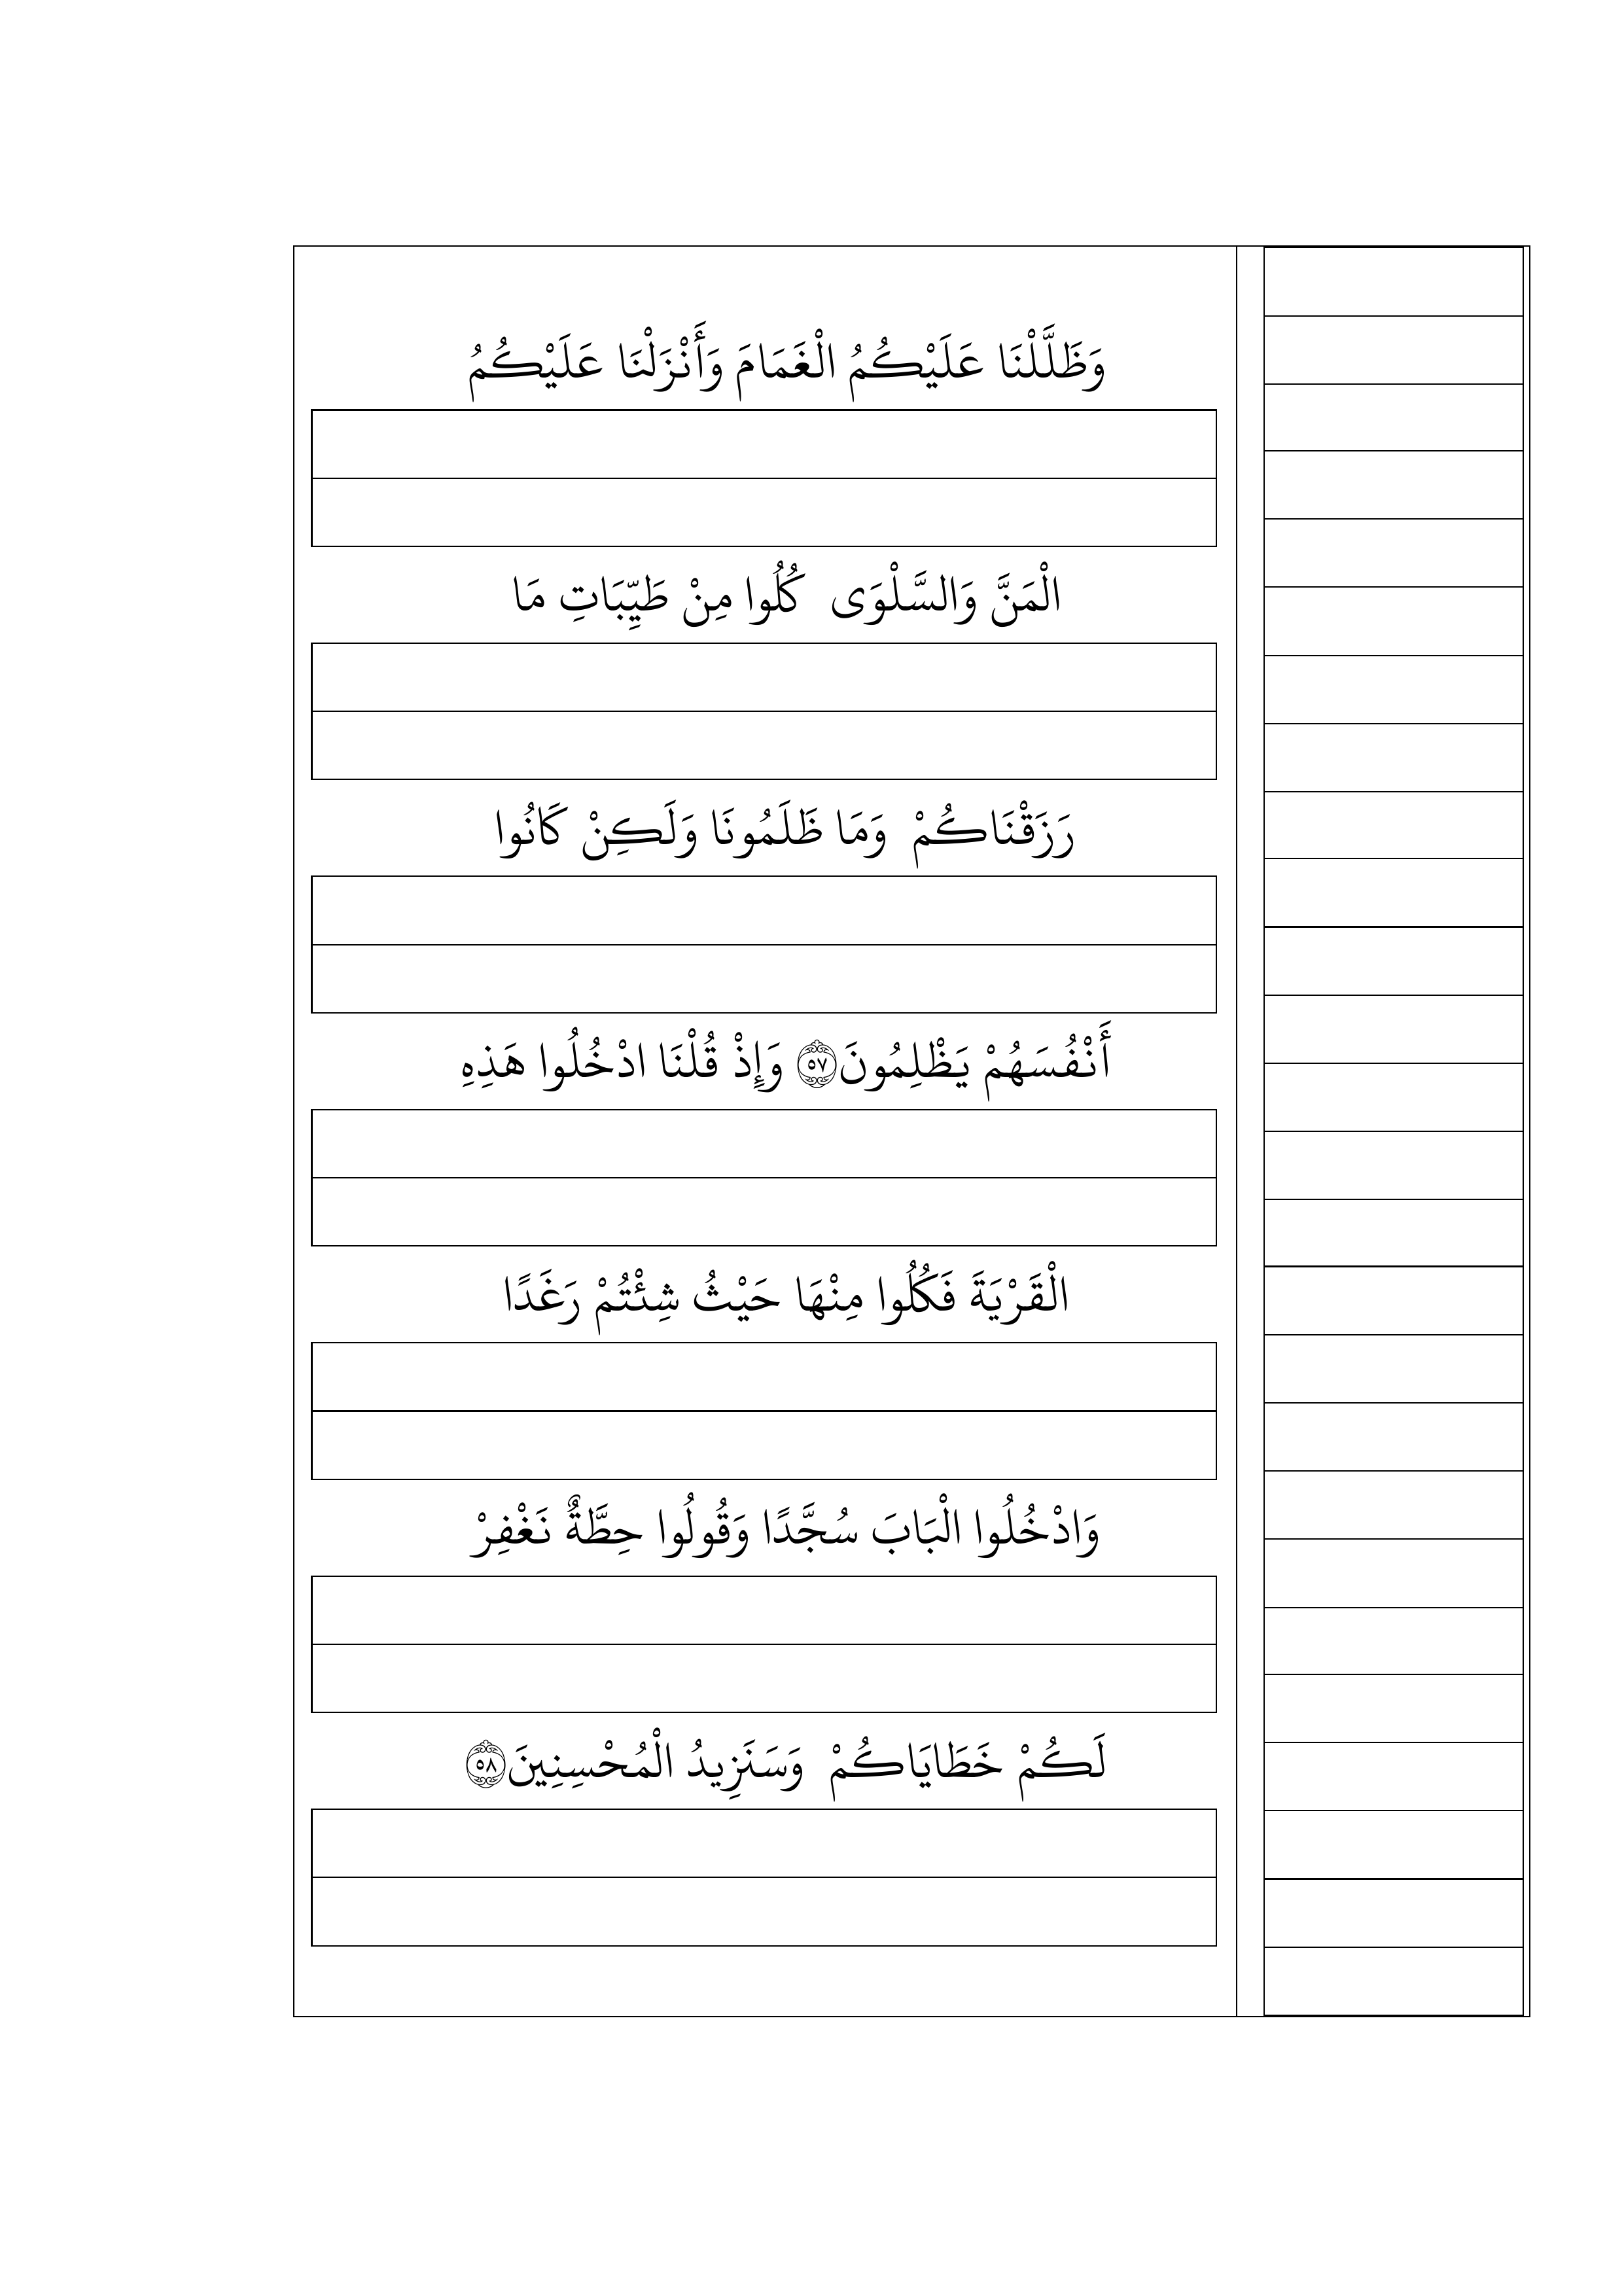 وَظَلَّلْنَا عَلَيْكُمُ الْغَمَامَ وَأَنْزَلْنَا عَلَيْكُمُ
الْمَنَّ وَالسَّلْوَى كُلُوا مِنْ طَيِّبَاتِ مَا
رَزَقْنَاكُمْ وَمَا ظَلَمُونَا وَلَكِنْ كَانُوا
أَنْفُسَهُمْ يَظْلِمُونَ ٥٧ وَإِذْ قُلْنَا ادْخُلُوا هَذِهِ
الْقَرْيَةَ فَكُلُوا مِنْهَا حَيْثُ شِئْتُمْ رَغَدًا
وَادْخُلُوا الْبَابَ سُجَّدًا وَقُولُوا حِطَّةٌ نَغْفِرْ
لَكُمْ خَطَايَاكُمْ وَسَنَزِيدُ الْمُحْسِنِينَ ٥٨